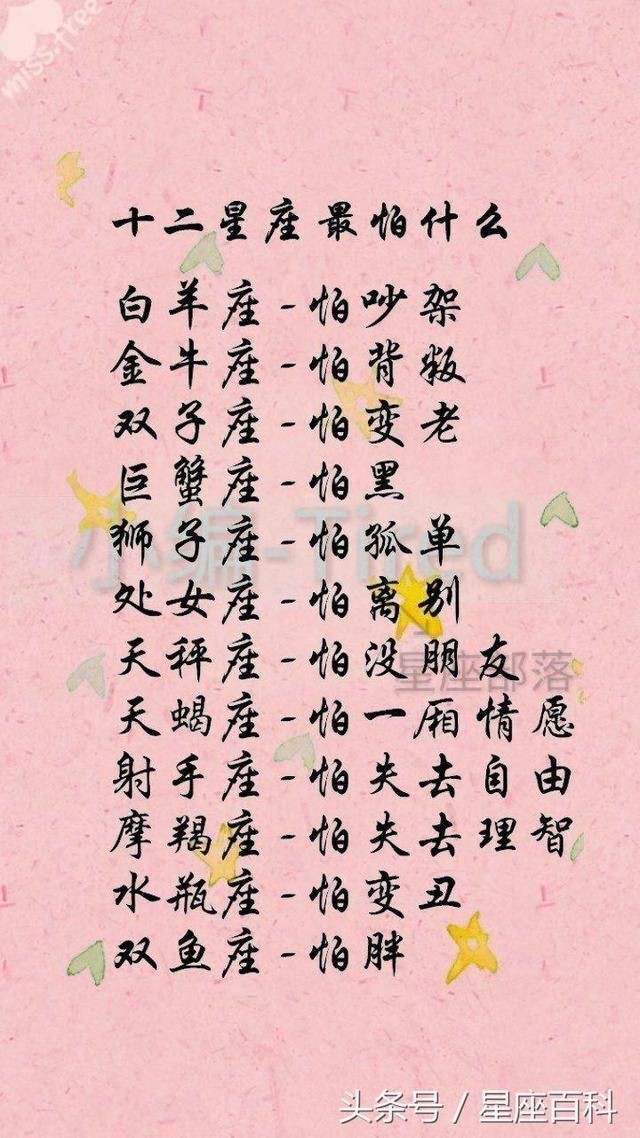 miss.free
十二星座最怕什么
白羊座-怕吵架
金牛座-怕背叛
双子座-怕变老
巨蟹座-怕黑
狮子座-怕孤单
小编-Tired
处女座-怕离别
天秤座-怕没朋友
星座部落
天蝎座-怕一厢情愿
射手座-怕失去自由
摩羯座-怕失去理智
水瓶座-怕变丑
双鱼座-怕胖
头条号/星座百科